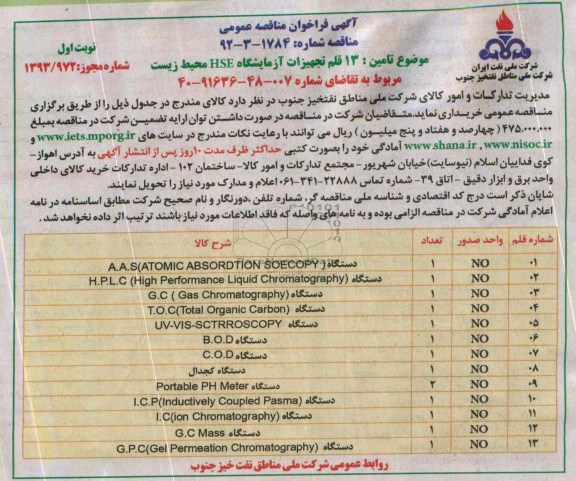 آگهی فراخوان مناقصه عمومی
مناقصه شماره: ۱۷۸۴-۳-۹۲
نوبت اول
موضوع تامین : ۱۳ قلم تجهیزات آزمایشگاه HSE محیط زیست
شماره مجوز: ۱۳۹۳/۹۷۲
مربوط به تقاضای شماره ۰۰۷-۴۸-۹۱۶۳۶-۴۰
شرکت ملی نفت ایران
شرکت ملی مناطق نفتخیز جنوب
مدیریت تدارکات و امور کالای شرکت ملی مناطق نفتخیز جنوب در نظر دارد کالای مندرج در جدول ذیل را از طریق برگزاری
مناقصه عمومی خریداری نماید.متقاضیان شرکت در مناقصه در صورت داشتن توان ارایه تضمین شرکت در مناقصه بمبلغ
۴۷۵.۰۰۰.۰۰۰ ( چهارصد و هفتاد و پنج میلیون ) ریال می توانند با رعایت نکات مندرج در سایت های www.iets.mporg.ir و
www.shana.ir , www.nisoc.ir آمادگی خود را بصورت کتبی حداکثر ظرف مدت ۱۰روز پس از انتشار آگهی به آدرس اهواز-
کوی فداییان اسلام (نیوسایت)خیابان شهریور -مجتمع تدارکات و امور کالا- ساختمان ۱۰۲ - اداره تدارکات خرید کالای داخلی
واحد برق و ابزار دقیق -اتاق ۳۹- شماره تماس ۲۲۸۸۸-۳۴۱-۰۶۱ اعلام و مدارک مورد نیاز را تحویل نمایند.
شایان ذکر است درج کد اقتصادی و شناسه ملی مناقصه گر، شماره تلفن ،دورنگار و نام صحیح شرکت مطابق اساسنامه در نامه
اعلام آمادگی شرکت در مناقصه الزامی بوده و به نامه های واصله که فاقد اطلاعات مورد نیاز باشند ترتیب اثر داده نخواهد شد.
شماره قلم واحد صدور تعداد شرح کالا
۰۱ NO ۱ دستگاه A.A.S(ATOMIC ABSORDTION SOECOPY )
۰۲ NO ۱ دستگاه H.P.L.C (High Performance Liquid Chromatography)
۰۳ NO ۱ دستگاه G.C ( Gas Chromatography)
۰۴ NO ۱ دستگاه T.O.C(Total Organic Carbon)
۰۵ NO ۱ دستگاه UV-VIS-SCTRROSCOPY
۰۶ NO ۱ دستگاه B.O.D
۰۷ NO ۱ دستگاه C.O.D
۰۸ NO ۱ دستگاه کجدال
۰۹ NO ۲ دستگاه Portable PH Meter
۱۰ NO ۱ دستگاه I.C.P(Inductively Coupled Pasma)
۱۱ NO ۱ دستگاه I.C(ion Chromatography)
۱۲ NO ۱ دستگاه G.C Mass
۱۳ NO ۱ دستگاه G.P.C(Gel Permeation Chromatography)
روابط عمومی شرکت ملی مناطق نفت خیز جنوب